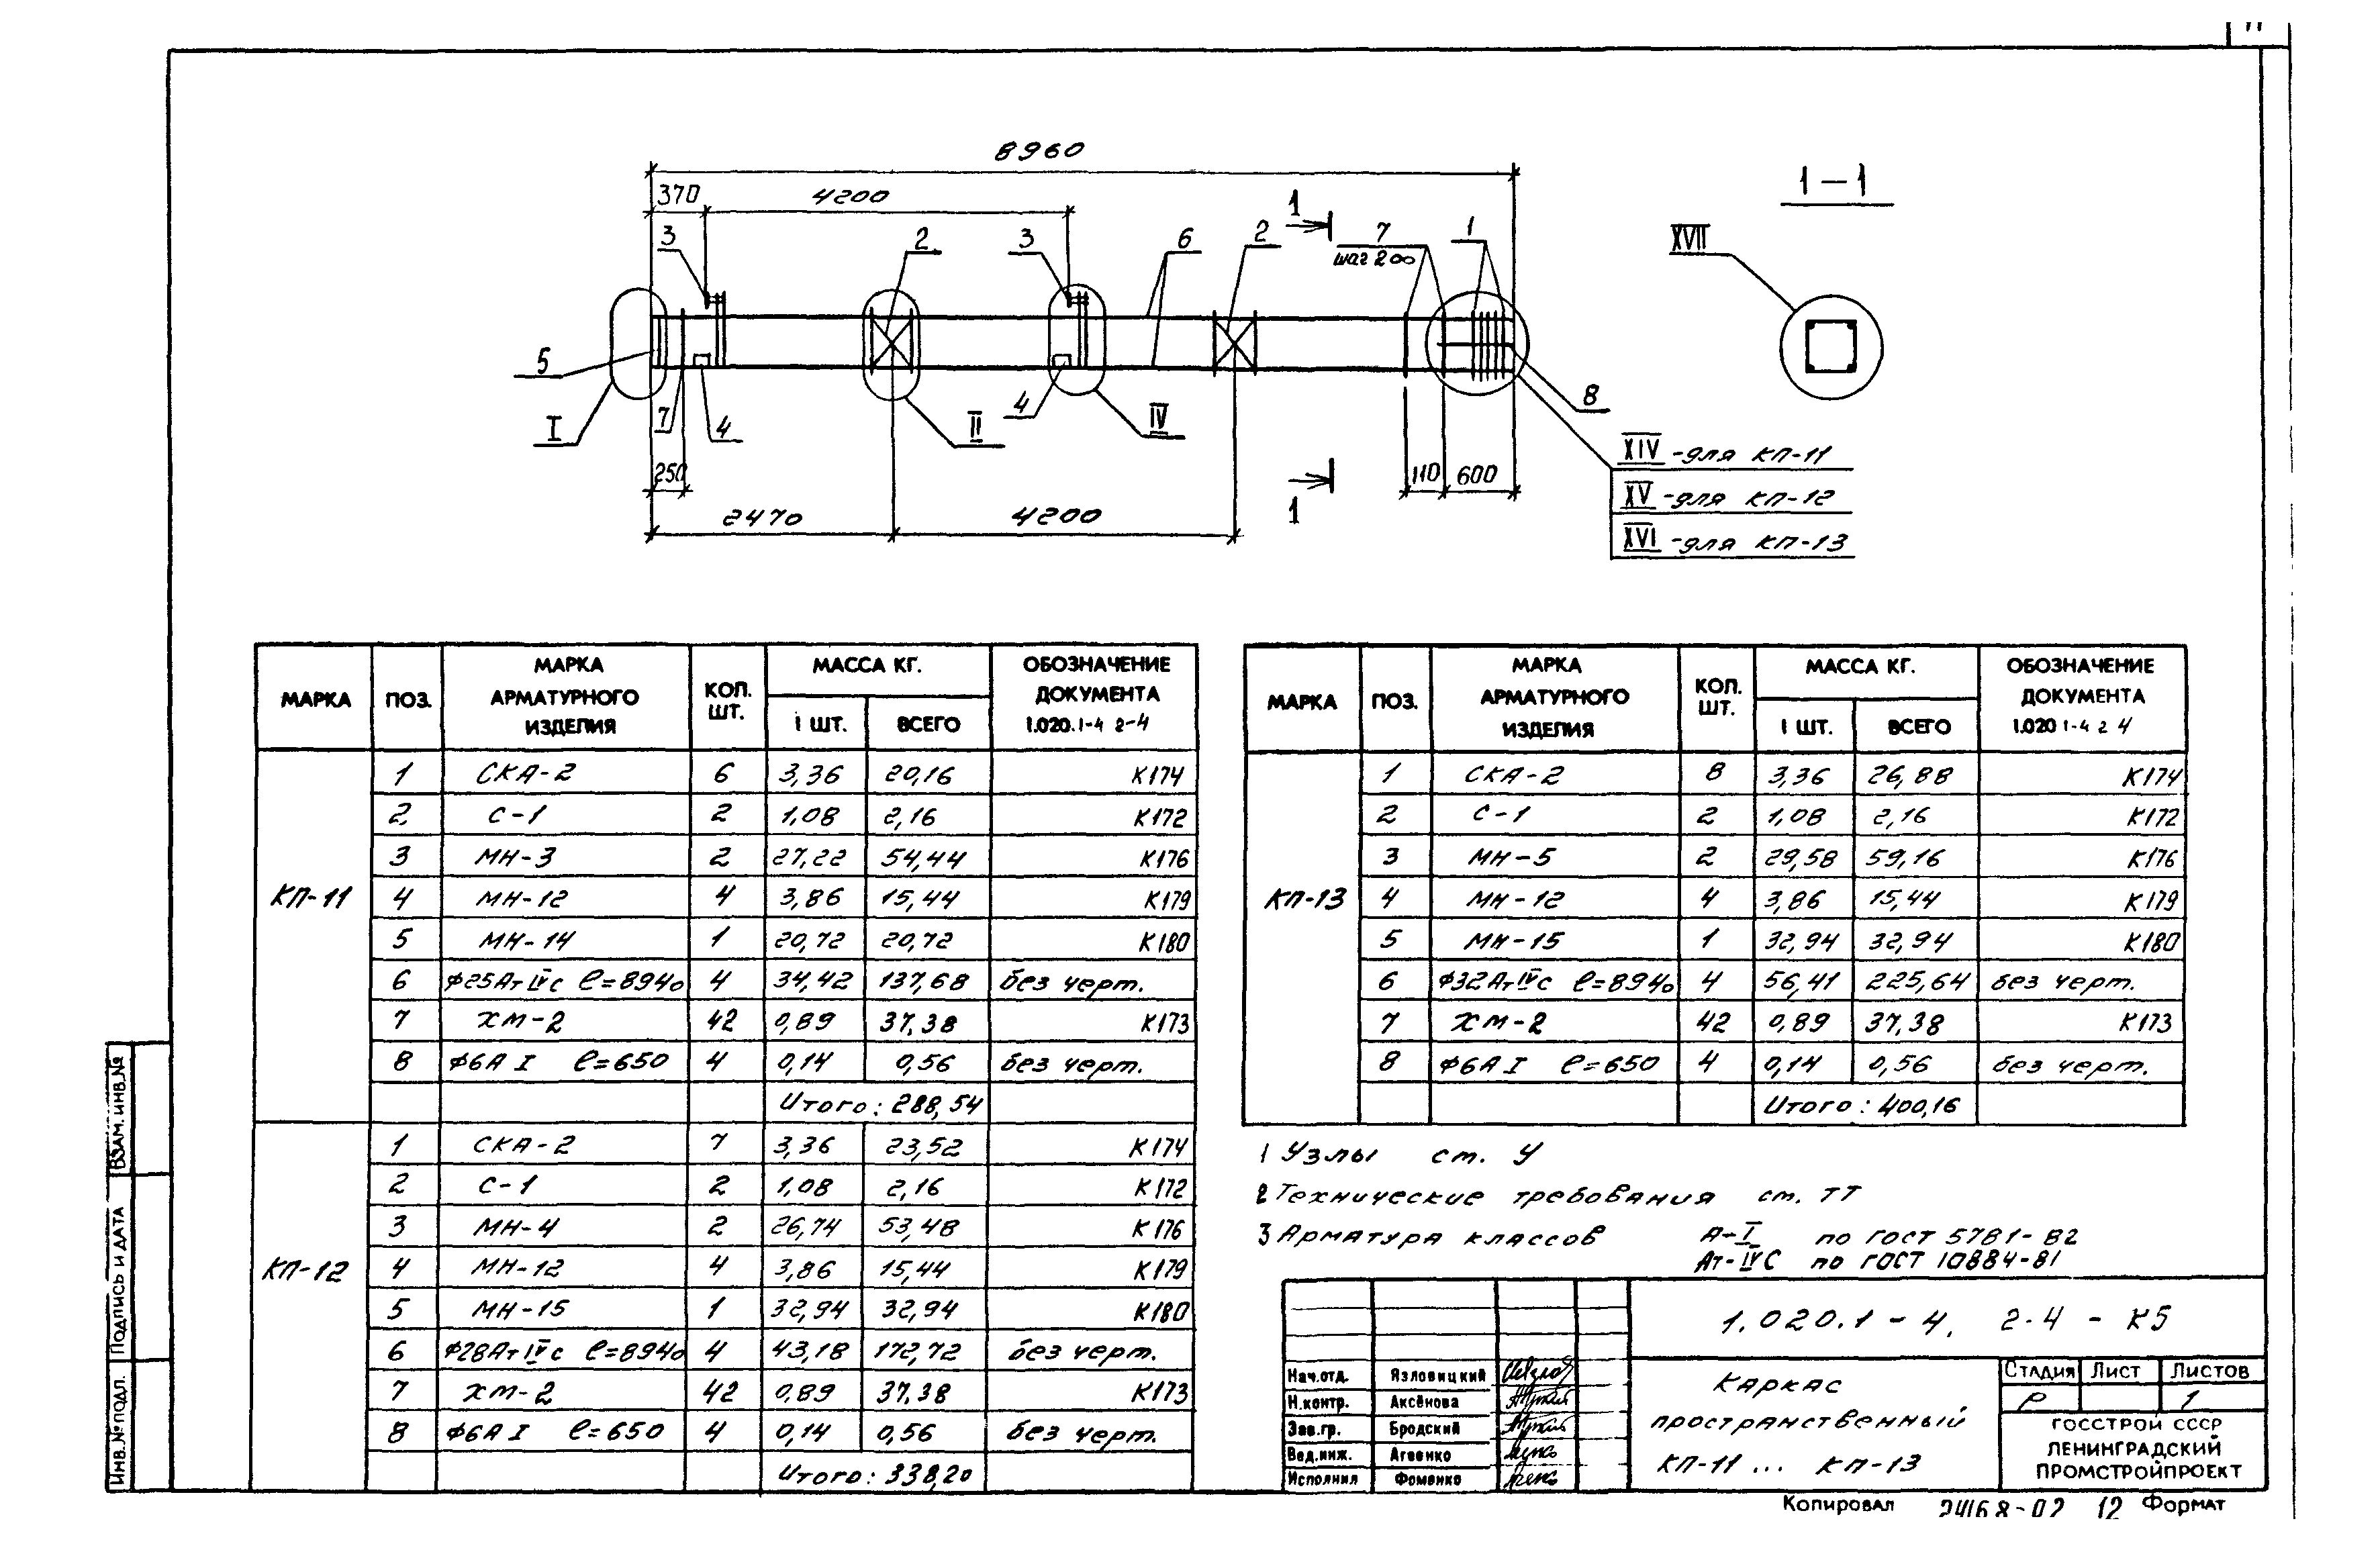 11
8960
370 4200
3 2 3 6 1 2 7 1
шаг 200
1-1
XVII
5 7 4 4 8
I II IV
250 110 600
2470 4200 1
XIV - для КП-11
XV - для КП-12
XVI - для КП-13
МАРКА ПОЗ. МАРКА АРМАТУРНОГО ИЗДЕЛИЯ КОЛ. ШТ. МАССА КГ. 1 ШТ. ВСЕГО ОБОЗНАЧЕНИЕ ДОКУМЕНТА 1.020.1-4 2-4
КП-11
1 СКА-2 6 3,36 20,16 К174
2 С-1 2 1,08 2,16 К172
3 МН-3 2 27,22 54,44 К176
4 МН-12 4 3,86 15,44 К179
5 МН-14 1 20,72 20,72 К180
6 Ф25АтIVс ℓ=8940 4 34,42 137,68 без черт.
7 ХМ-2 42 0,89 37,38 К173
8 Ф6А I ℓ=650 4 0,14 0,56 без черт.
Итого: 288,54
КП-12
1 СКА-2 7 3,36 23,52 К174
2 С-1 2 1,08 2,16 К172
3 МН-4 2 26,74 53,48 К176
4 МН-12 4 3,86 15,44 К179
5 МН-15 1 32,94 32,94 К180
6 Ф28АтIVс ℓ=8940 4 43,18 172,72 без черт.
7 ХМ-2 42 0,89 37,38 К173
8 Ф6А I ℓ=650 4 0,14 0,56 без черт.
Итого: 338,20
МАРКА ПОЗ. МАРКА АРМАТУРНОГО ИЗДЕЛИЯ КОЛ. ШТ. МАССА КГ. 1 ШТ. ВСЕГО ОБОЗНАЧЕНИЕ ДОКУМЕНТА 1.020 1-4 2 4
КП-13
1 СКА-2 8 3,36 26,88 К174
2 С-1 2 1,08 2,16 К172
3 МН-5 2 29,58 59,16 К176
4 МН-12 4 3,86 15,44 К179
5 МН-15 1 32,94 32,94 К180
6 Ф32АтIVс ℓ=8940 4 56,41 225,64 без черт.
7 ХМ-2 42 0,89 37,38 К173
8 Ф6А I ℓ=650 4 0,14 0,56 без черт.
Итого: 400,16
1 Узлы см. У
2 Технические требования см. ТТ
3 Арматура классов А-I по ГОСТ 5781-82
Ат-IVС по ГОСТ 10884-81
1.020.1-4. 2-4 - К5
Нач.отд. Язловицкий
Н.контр. Аксёнова
Зав.гр. Бродский
Вед.инж. Агеенко
Исполнил Фоменко
Каркас
пространственный
КП-11 ... КП-13
Стадия Лист Листов
Р 1
ГОССТРОЙ СССР
ЛЕНИНГРАДСКИЙ
ПРОМСТРОЙПРОЕКТ
Копировал 24168-02 12 Формат
Взам.инв.№
Подпись и дата
Инв.№ подл.